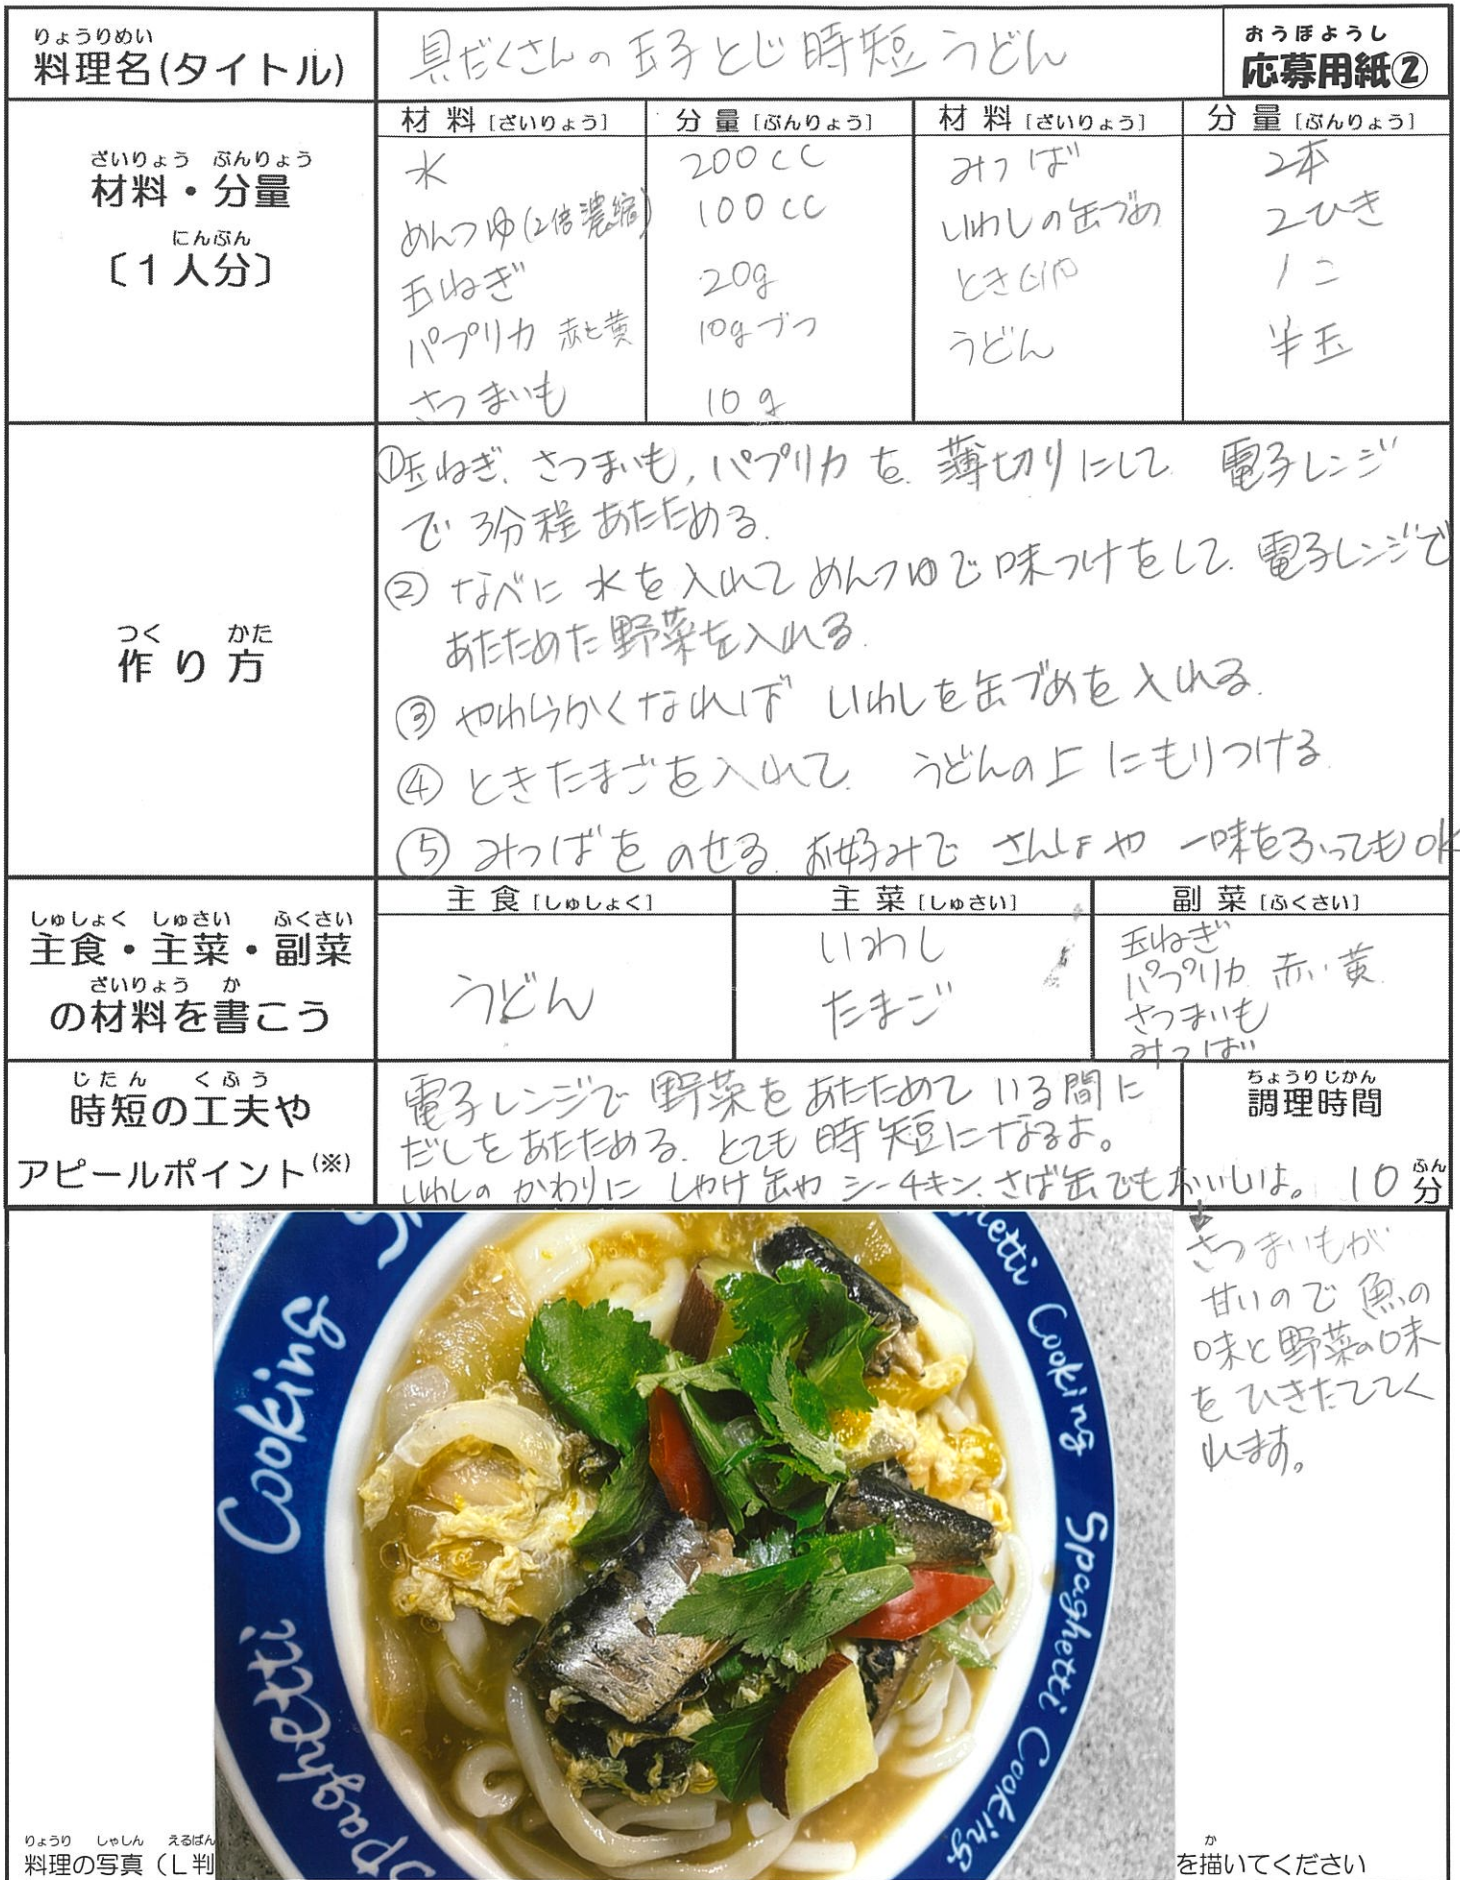 りょうりめい
料理名(タイトル)
具だくさんの玉子とじ時短うどん
おうぼようし
応募用紙②
ざいりょう ぶんりょう
材料・分量
にんぶん
〔1人分〕
材料[ざいりょう] 分量[ぶんりょう] 材料[ざいりょう] 分量[ぶんりょう]
水 200cc みつば 2本
めんつゆ(2倍濃縮) 100cc いわしの缶づめ 2ひき
玉ねぎ 20g とき 1こ
パプリカ 赤と黄 10gづつ うどん 半玉
さつまいも 10g
つく かた
作り方
①玉ねぎ、さつまいも、パプリカを薄切りにして 電子レンジ
で3分程あたためる。
② なべに水を入れてめんつゆで味つけをして、電子レンジで
あたためた野菜を入れる。
③ やわらかくなれば いわしを缶づめを入れる。
④ ときたまごを入れて うどんの上にもりつける
⑤ みつばをのせる お好みで さんしょや 一味をふってもOK
しゅしょく しゅさい ふくさい
主食・主菜・副菜
ざいりょう か
の材料を書こう
主食[しゅしょく] 主菜[しゅさい] 副菜[ふくさい]
うどん
いわし
たまご
玉ねぎ
パプリカ 赤い黄
さつまいも
みつば
じたん くふう
時短の工夫や
アピールポイント(※)
電子レンジで野菜をあたためている間に
だしをあたためる。とても時短になるよ。
いわしのかわりに しゃけ缶や シーチキン、さば缶でもおいしいよ。
ちょうりじかん
調理時間
10分
ふん
さつまいもが
甘いので魚の
味と野菜の味
をひきたててく
れます。
Spaghetti Cooking
Spaghetti Cooking
りょうり しゃしん えるばん
料理の写真(L判
か
を描いてください